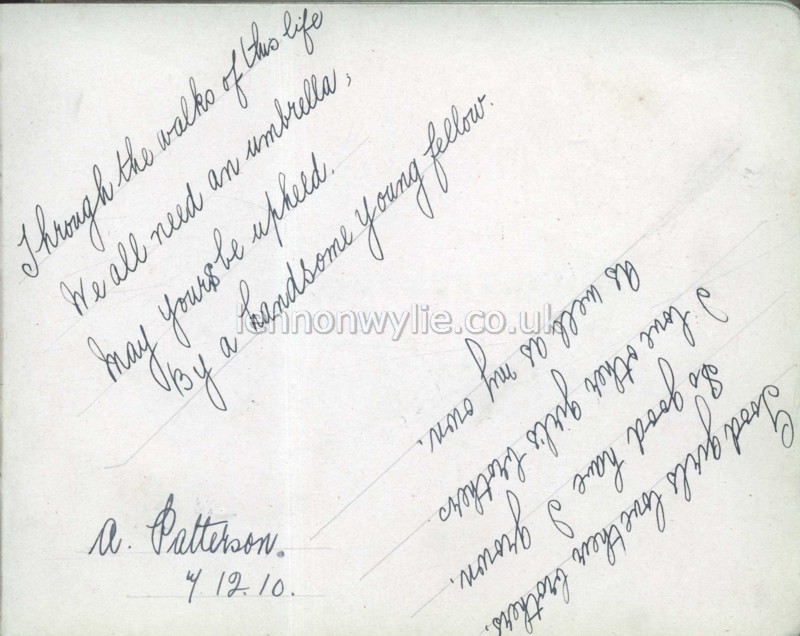 Through the walks of this life
We all need an umbrella;
May yours be upheld.
By a handsome young fellow.
Good girls love their brothers.
So good have I grown.
I love other girls brothers
As well as my own.
A. Patterson.
7.12.10.
lennonwylie.co.uk